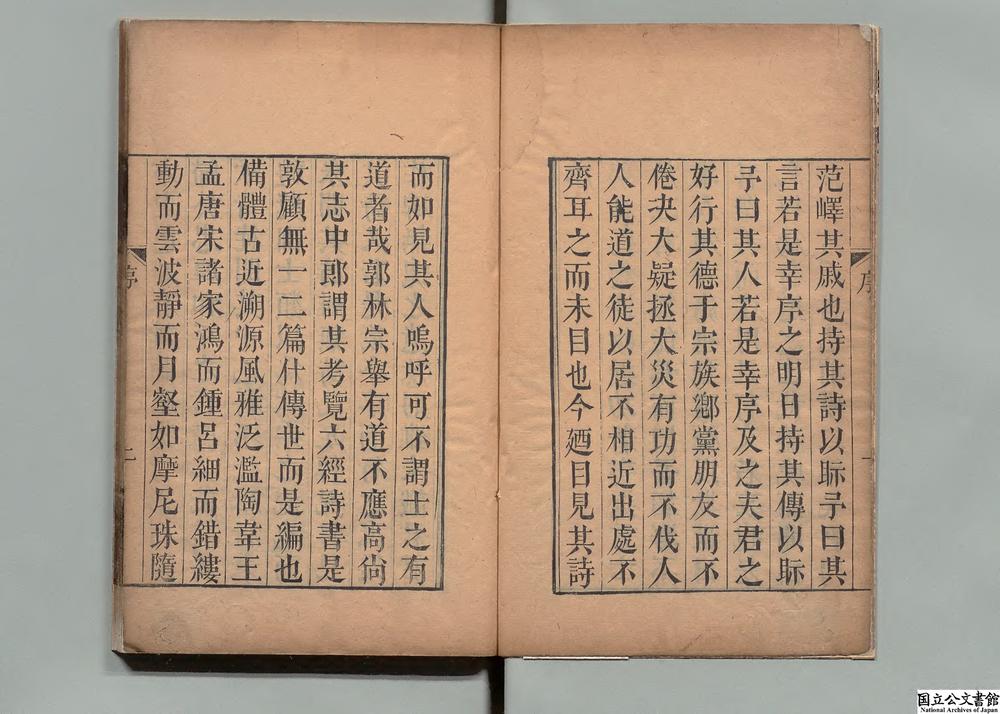 范嶧其戚也持其詩以眎予曰其
言若是幸序之明日持其傳以眎
予曰其人若是幸序及之夫君之
好行其德于宗族鄉黨朋友而不
倦夬大疑拯大災有功而不伐人
人能道之徒以居不相近出處不
齊耳之而未目也今廼目見其詩
序
一
而如見其人嗚呼可不謂士之有
道者哉郭林宗舉有道不應高尙
其志中郎謂其考覽六經詩書是
敦顧無一二篇什傳世而是編也
備體古近溯源風雅泛濫陶韋王
孟唐宋諸家鴻而鍾呂細而錯縷
動而雲波靜而月壑如摩尼珠隨
序
二
国立公文書館
National Archives of Japan